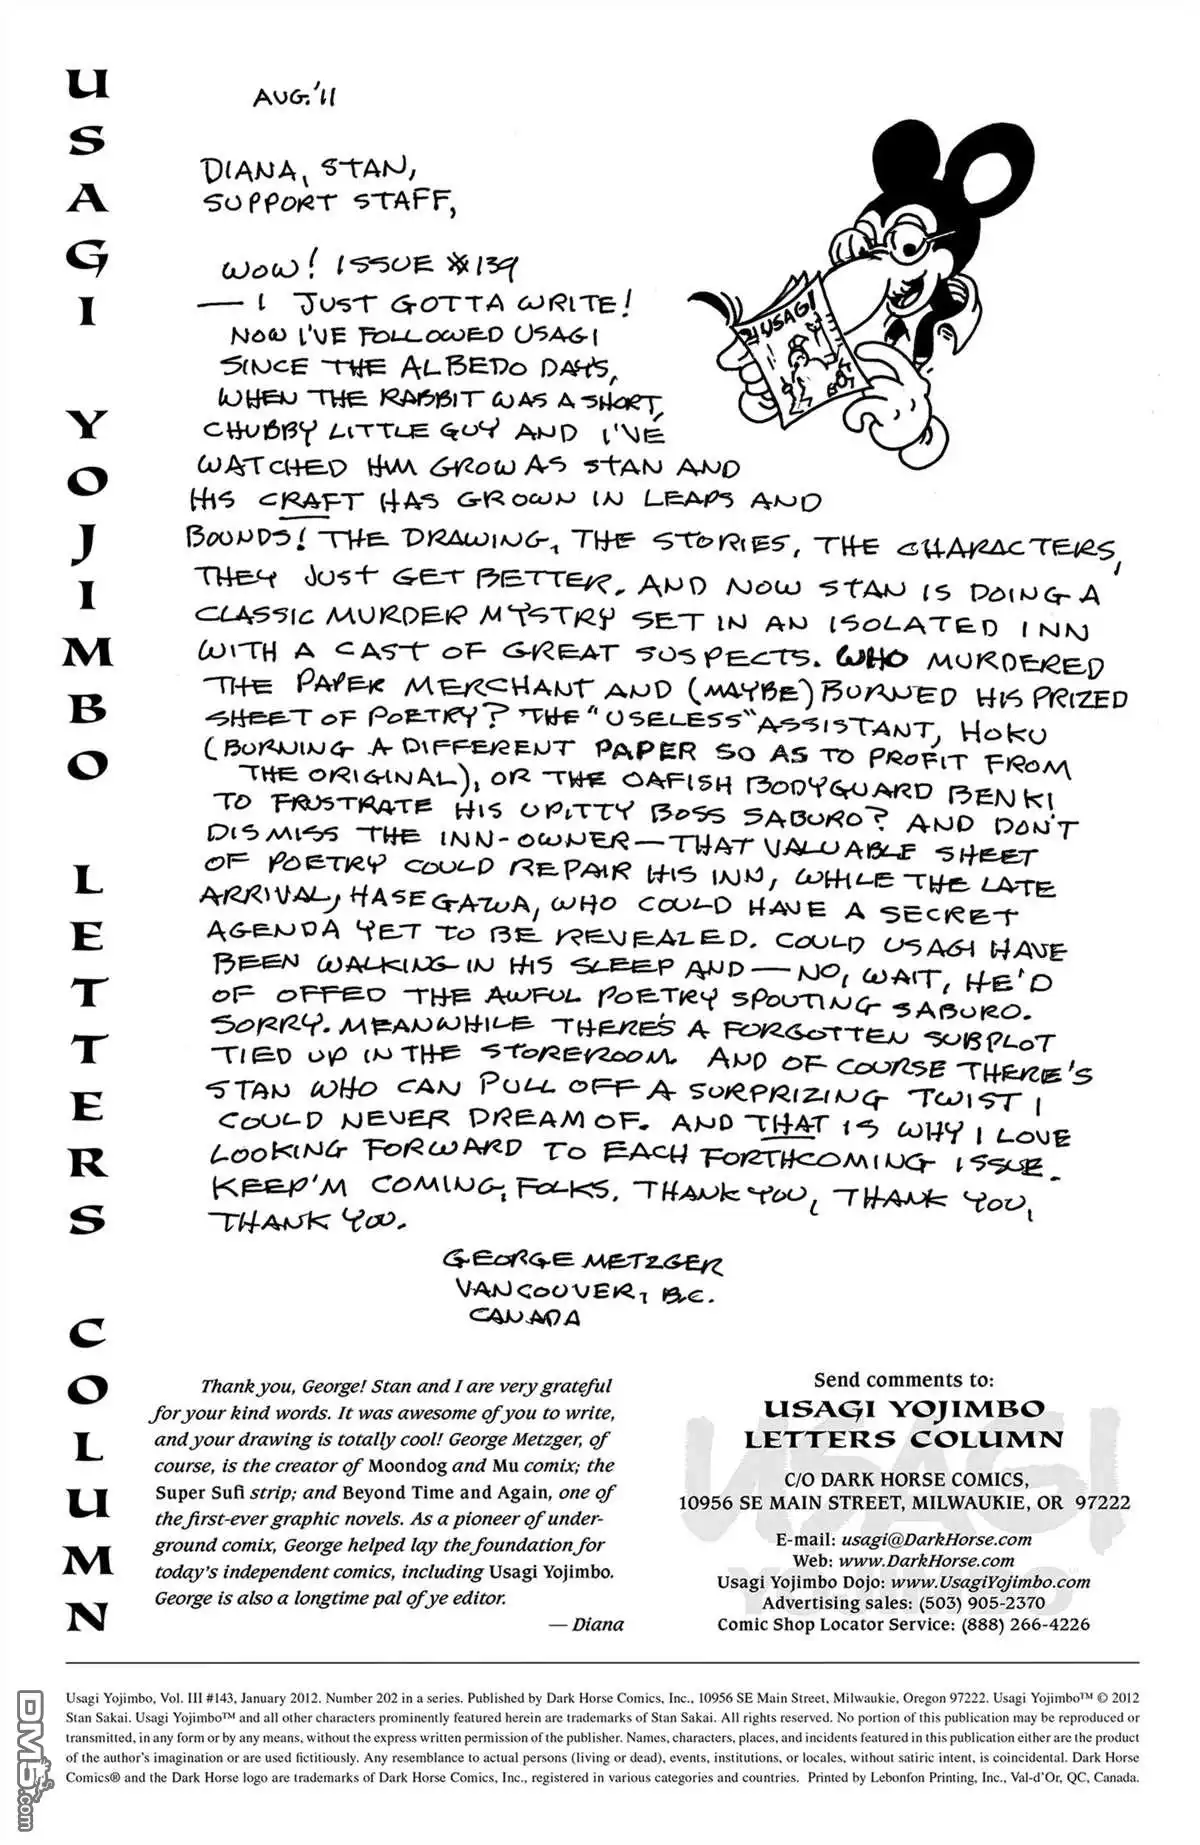 USAGI YOJIMBO LETTERS COLUMN
AUG. '11
DIANA, STAN,
SUPPORT STAFF,
WOW! ISSUE #139
— I JUST GOTTA WRITE!
NOW I'VE FOLLOWED USAGI
SINCE THE ALBEDO DAYS,
WHEN THE RABBIT WAS A SHORT,
CHUBBY LITTLE GUY AND I'VE
WATCHED HIM GROW AS STAN AND
HIS CRAFT HAS GROWN IN LEAPS AND
BOUNDS! THE DRAWING, THE STORIES, THE CHARACTERS,
THEY JUST GET BETTER. AND NOW STAN IS DOING A
CLASSIC MURDER MYSTRY SET IN AN ISOLATED INN
WITH A CAST OF GREAT SUSPECTS. WHO MURDERED
THE PAPER MERCHANT AND (MAYBE) BURNED HIS PRIZED
SHEET OF POETRY? THE "USELESS" ASSISTANT, HOKU
(BURNING A DIFFERENT PAPER SO AS TO PROFIT FROM
THE ORIGINAL), OR THE OAFISH BODYGUARD BENKI
TO FRUSTRATE HIS UPITTY BOSS SABURO? AND DON'T
DISMISS THE INN-OWNER—THAT VALUABLE SHEET
OF POETRY COULD REPAIR HIS INN, WHILE THE LATE
ARRIVAL, HASEGAWA, WHO COULD HAVE A SECRET
AGENDA YET TO BE REVEALED. COULD USAGI HAVE
BEEN WALKING IN HIS SLEEP AND — NO, WAIT, HE'D
OF OFFED THE AWFUL POETRY SPOUTING SABURO.
SORRY. MEANWHILE THERE'S A FORGOTTEN SUBPLOT
TIED UP IN THE STOREROOM. AND OF COURSE THERE'S
STAN WHO CAN PULL OFF A SURPRIZING TWIST I
COULD NEVER DREAM OF. AND THAT IS WHY I LOVE
LOOKING FORWARD TO EACH FORTHCOMING ISSUE.
KEEP'M COMING, FOLKS. THANK YOU, THANK YOU,
THANK YOU.
GEORGE METZGER
VANCOUVER, B.C.
CANADA
USAGI
Thank you, George! Stan and I are very grateful
for your kind words. It was awesome of you to write,
and your drawing is totally cool! George Metzger, of
course, is the creator of Moondog and Mu comix; the
Super Sufi strip; and Beyond Time and Again, one of
the first-ever graphic novels. As a pioneer of under-
ground comix, George helped lay the foundation for
today's independent comics, including Usagi Yojimbo.
George is also a longtime pal of ye editor.
— Diana
USAGI
YOJIMBO
Send comments to:
USAGI YOJIMBO
LETTERS COLUMN
C/O DARK HORSE COMICS,
10956 SE MAIN STREET, MILWAUKIE, OR 97222
E-mail: usagi@DarkHorse.com
Web: www.DarkHorse.com
Usagi Yojimbo Dojo: www.UsagiYojimbo.com
Advertising sales: (503) 905-2370
Comic Shop Locator Service: (888) 266-4226
Usagi Yojimbo, Vol. III #143, January 2012. Number 202 in a series. Published by Dark Horse Comics, Inc., 10956 SE Main Street, Milwaukie, Oregon 97222. Usagi Yojimbo™ © 2012
Stan Sakai. Usagi Yojimbo™ and all other characters prominently featured herein are trademarks of Stan Sakai. All rights reserved. No portion of this publication may be reproduced or
transmitted, in any form or by any means, without the express written permission of the publisher. Names, characters, places, and incidents featured in this publication either are the product
of the author's imagination or are used fictitiously. Any resemblance to actual persons (living or dead), events, institutions, or locales, without satiric intent, is coincidental. Dark Horse
Comics® and the Dark Horse logo are trademarks of Dark Horse Comics, Inc., registered in various categories and countries. Printed by Lebonfon Printing, Inc., Val-d'Or, QC, Canada.